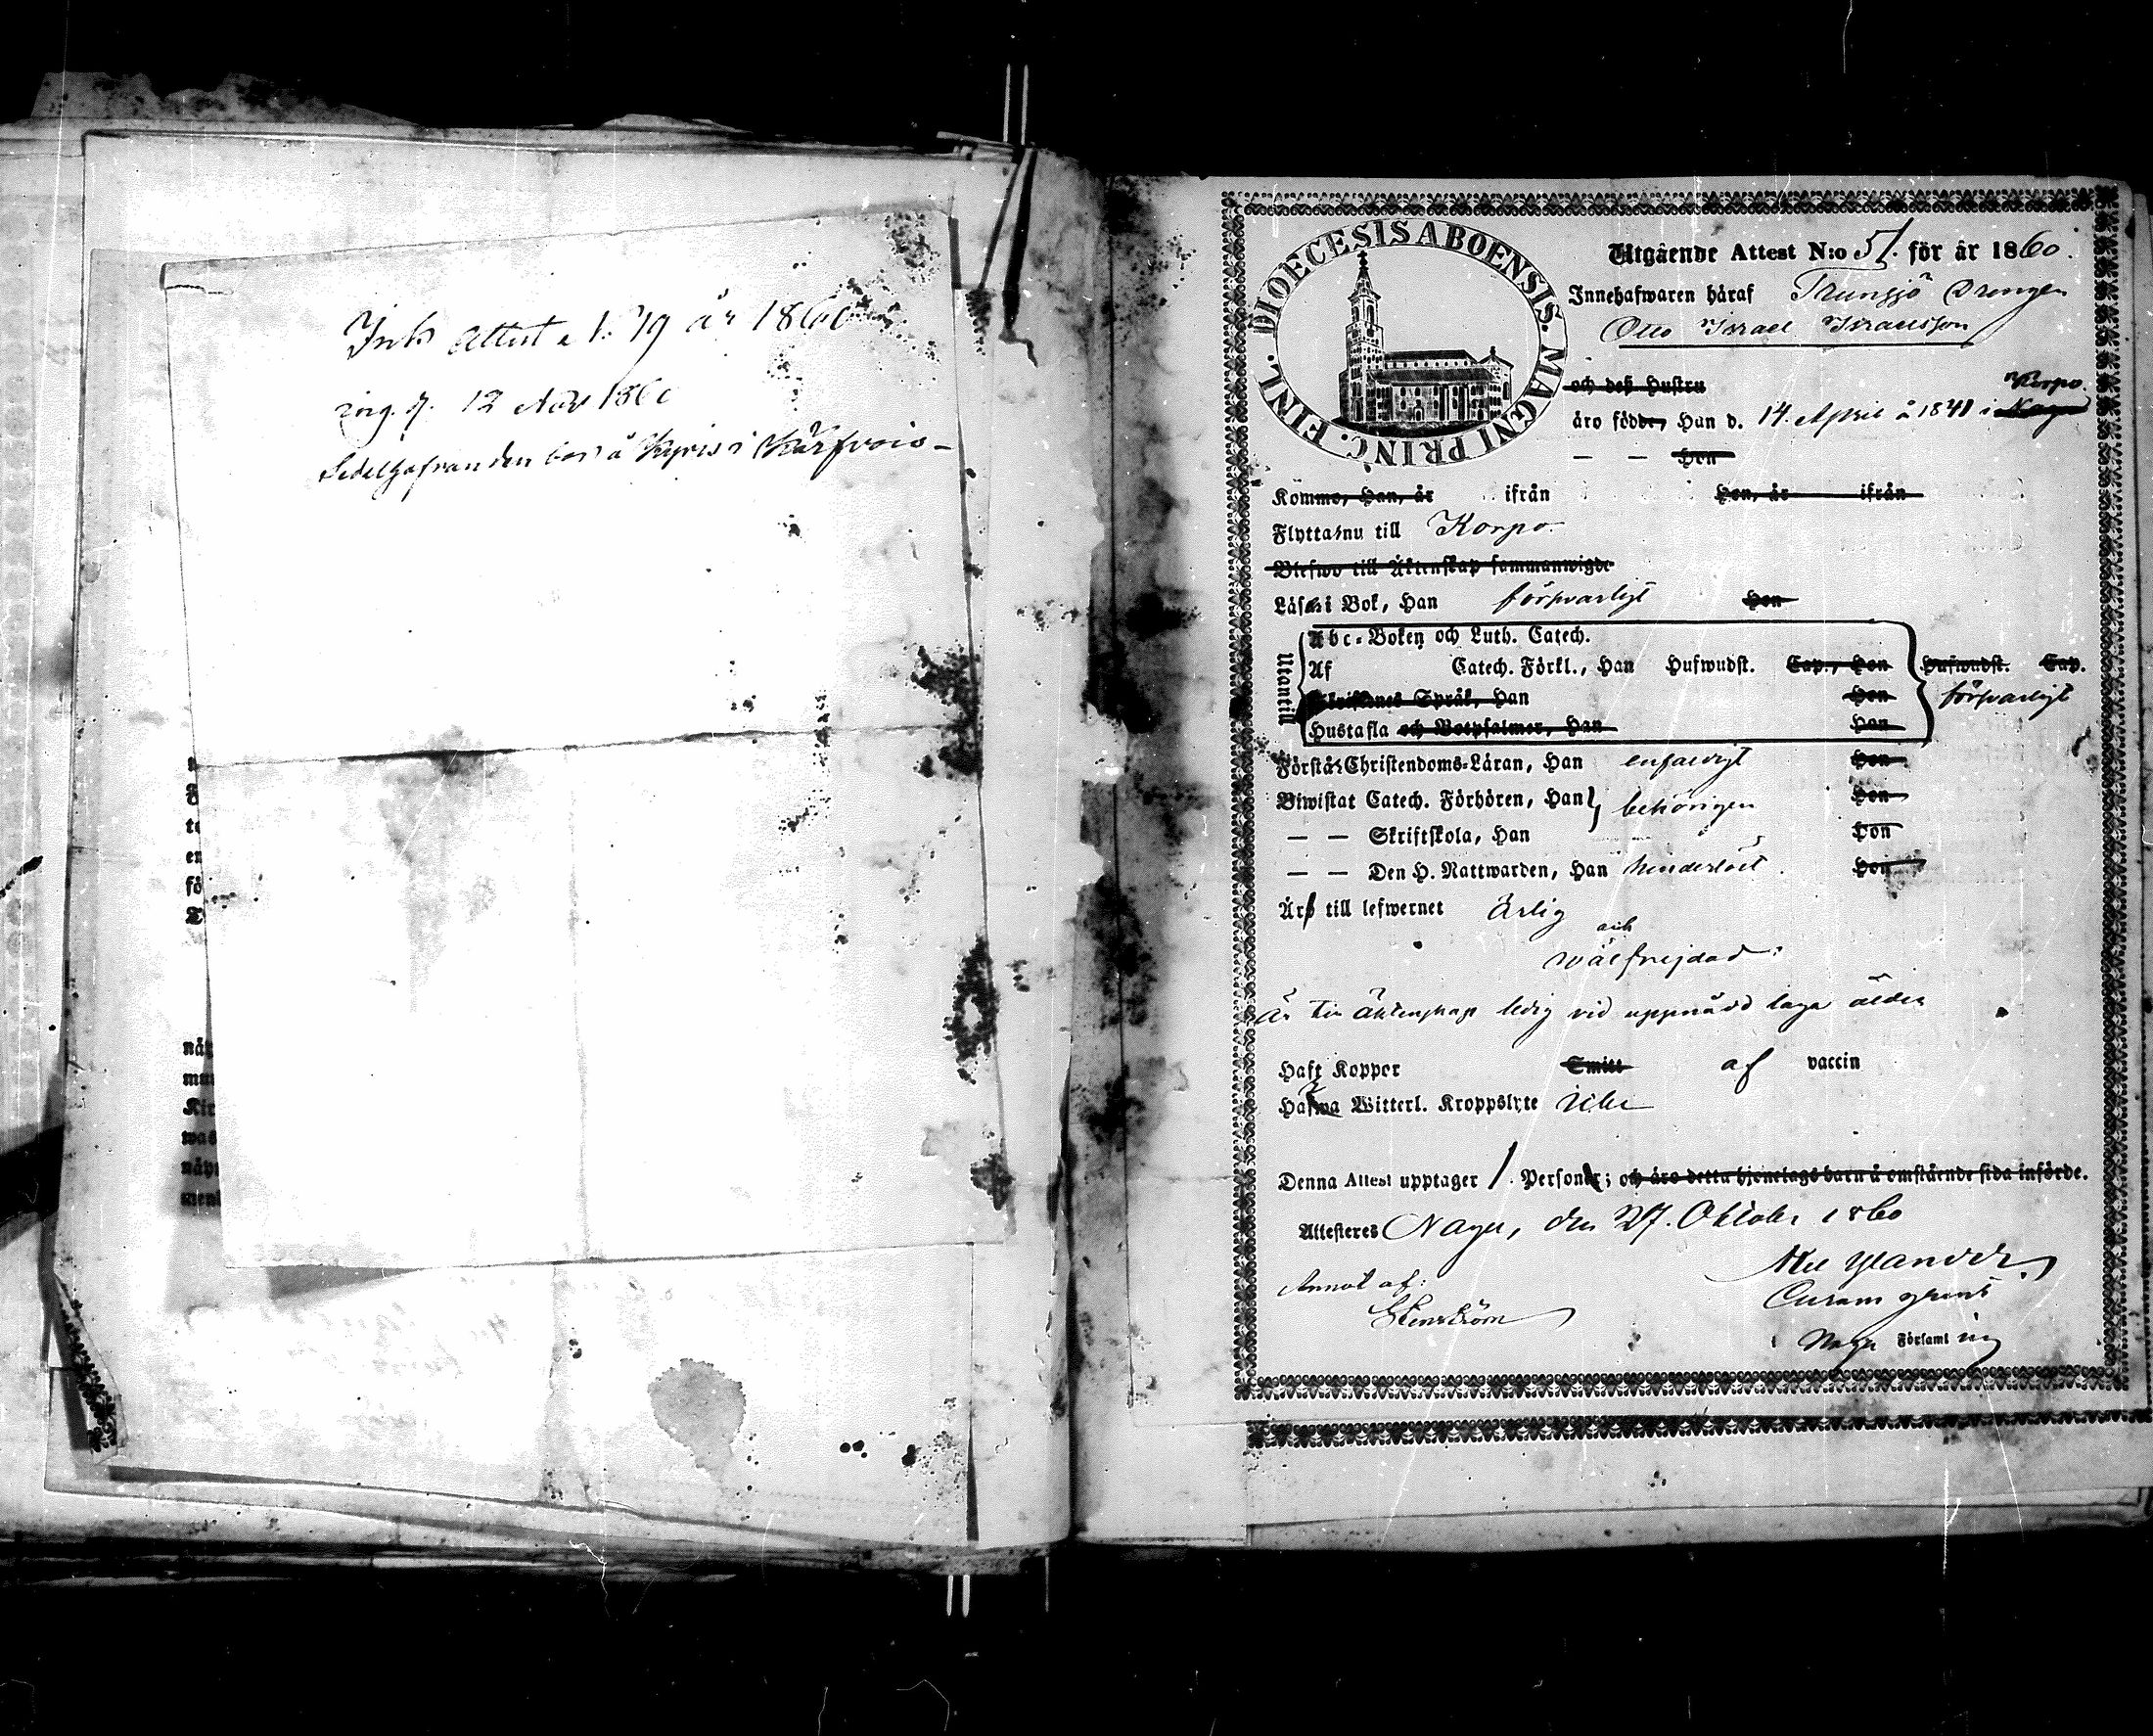 Ink attest N:o 19 år 1860
12 Nov 1860
å Kyris i Kärfvois
fö
nä
Kir
was
näyt
men
DIOECESIS ABOENSIS. MAGNI PRINC. FINL.
Utgående Attest N:o 51. för år 1860.
Innehafwaren häraf Trunsjö Drengen
Otto Israel Israelsson
och deß Hustru
Korpo.
äro födde, Han d. 14. April å 1841 i Nagu
— — Hon
Komme, Han, år ifrån Hon, år ifrån
Flytta nu till Korpo
Blefwo till Äktenskap sammanwigde
Läsa i Bok, Han försvarligt Hon
Utantill
Abc-Boken och Luth. Catech.
Af Catech. Förkl., Han Hufwudst. Cap., Hon Hufwudst. Cap.
Skriftenes Språk, Han Hon försvarligt
Hustafla och Botpsalmer, Han Hon
Förstå Christendoms-Läran, Han enfaldigt Hon
Biwistat Catech. Förhören, Han behörigen Hon
— — Skriftskola, Han Hon
— — Den H. Nattwarden, Han hinderlöst. Hon
Äro till lefwernet ärlig
och
wälfrejdad.
Är till äktenskap ledig vid uppnådd laga ålder
Haft Koppor Smitt af vaccin
Hafwa Witterl. Kroppslyte icke
Denna Attest upptager 1. Personer; och äro detta hjonelags barn å omstående sida införde.
Attesteres Nagu, den 27. Oktober 1860
Annot af:
Stenström
Curam gerens
i Nagu Församling